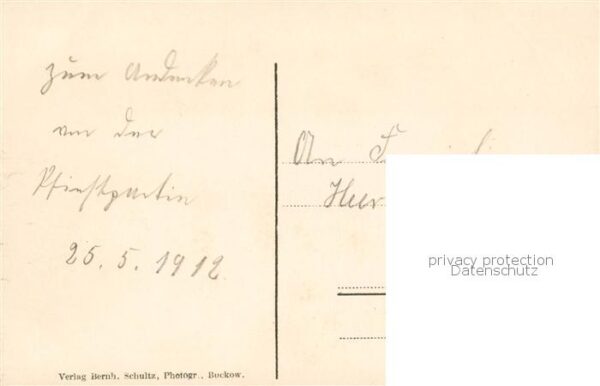 zum Andenken
von der
Pfingstpartie
25. 5. 1912
An F
Herr
privacy protection
Datenschutz
Verlag Bernh. Schultz, Photogr., Buckow.